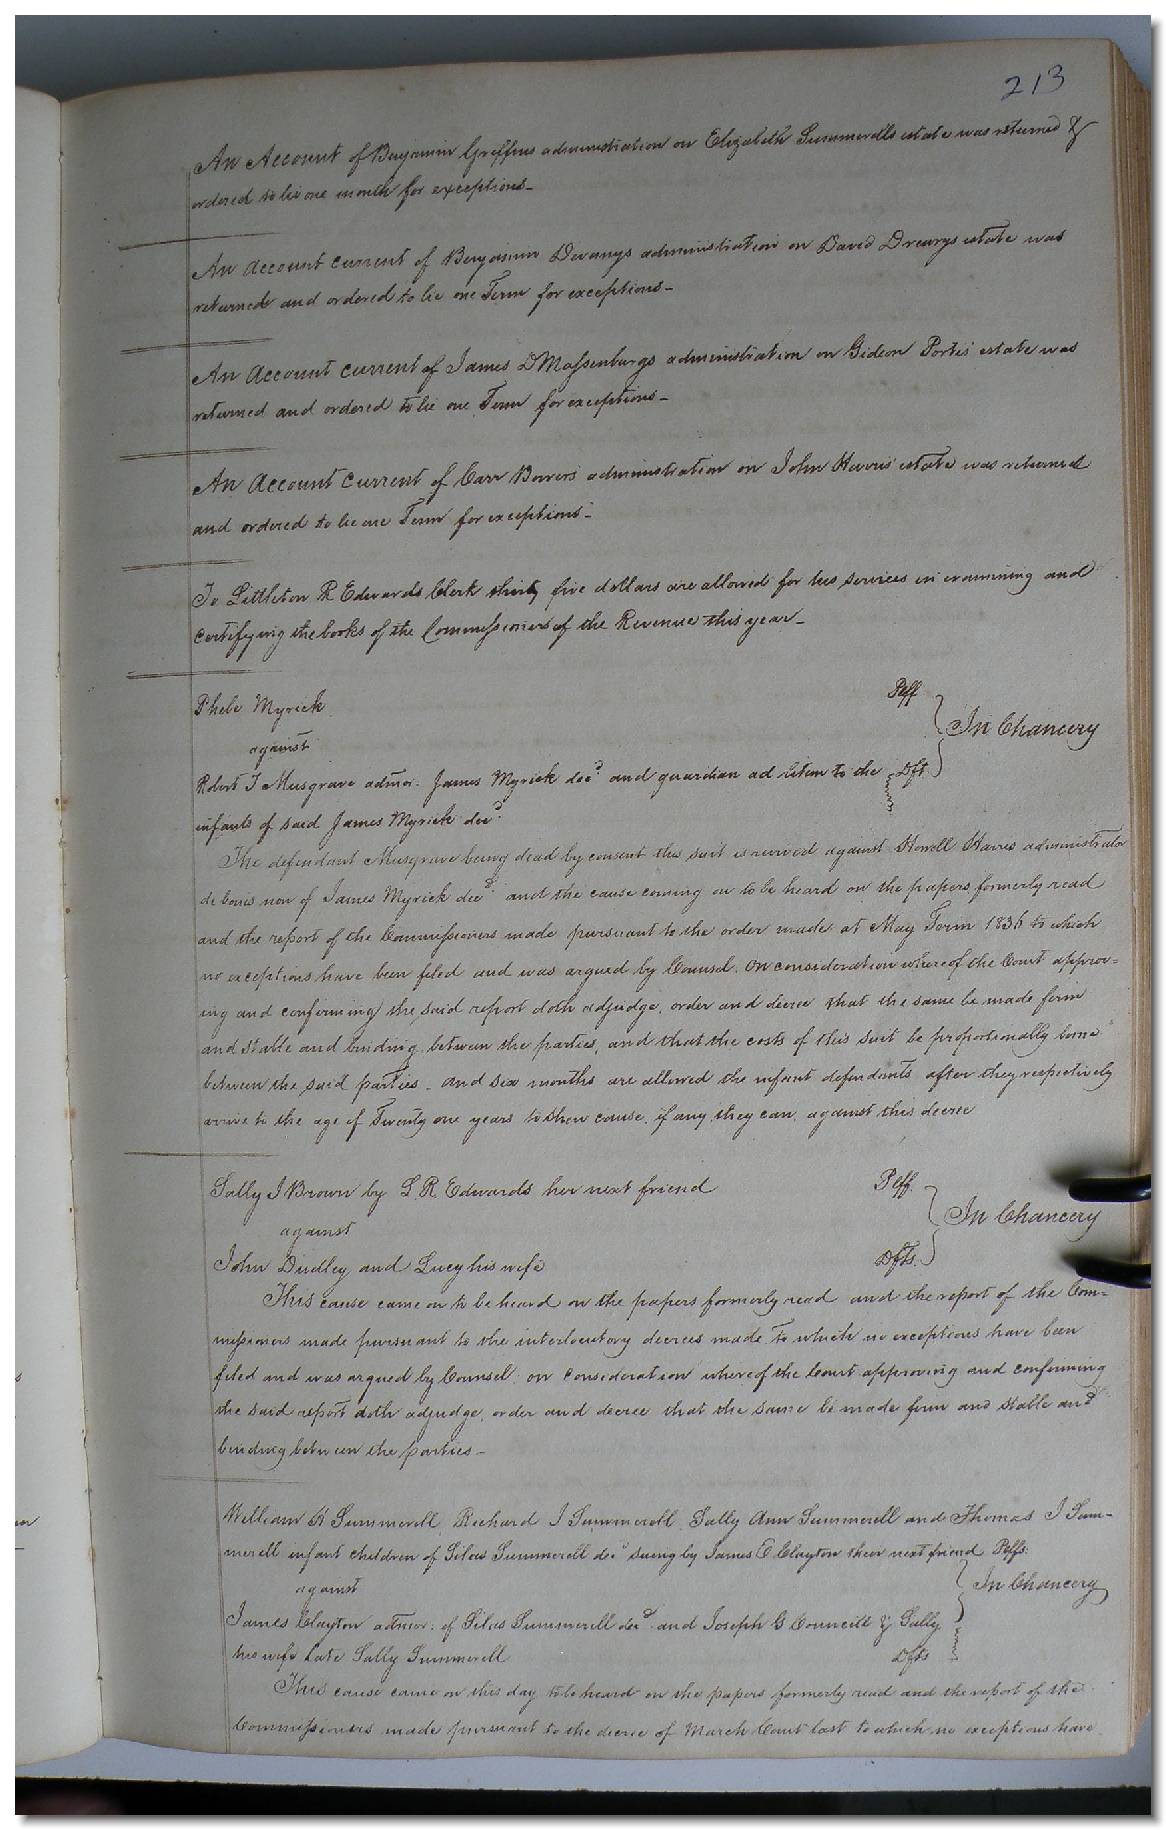 213
An Account of Benjamin Griffins administration on Elizabeth Summerells estate was returned &
ordered to lie one month for exceptions-
An Account Current of Benjamin Devanys administration on David Drewrys estate was
returned and ordered to lie one Term for exceptions-
An Account Current of James D Massenburgs administration on Gideon Portis' estate was
returned and ordered to lie one Term for exceptions-
An Account Current of Carr Bowers administration on John Harris' estate was returned
and ordered to lie one Term for exceptions-
To Littleton R Edwards Clerk thirty five dollars are allowed for his services in examining and
certifying the books of the Commissioners of the Revenue this year-
Phebe Myrick Plff
against In Chancery
Robert T Musgrave admor. James Myrick decd. and guardian ad litem to the Dft.
infants of said James Myrick decd.
The defendant Musgrave being dead by consent this suit is revived against Howell Harris administrator
de bonis non of James Myrick decd. and the cause coming on to be heard on the papers formerly read
and the report of the Commissioners made pursuant to the order made at May Term 1836 to which
no exceptions have been filed and was argued by Counsel. on consideration whereof the Court approv=
ing and confirming the said report doth adjudge, order and decree that the same be made firm
and stable and binding between the parties, and that the costs of this suit be proportionally borne
between the said parties. and six months are allowed the infant defendants after they respectively
arrive to the age of Twenty one years to shew cause, if any they can, against this decree
Sally J Brown by L. R. Edwards her next friend Plff.
against In Chancery
John Dudley and Lucy his wife Dfts.
This cause came on to be heard on the papers formerly read and the report of the Com=
missioners made pursuant to the interlocutory decrees made To which no exceptions have been
filed and was argued by Counsel. on consideration whereof the Court approving and confirming
the said report doth adjudge, order and decree that the same be made firm and stable and
binding between the parties-
William H Summerell, Richard J Summerell, Sally Ann Summerell and Thomas J Sum=
merell infant children of Silas Summerell decd suing by James E Clayton their next friend Plffs.
against In Chancery
James Clayton admor. of Silas Summerell decd. and Joseph G Councill & Sally
his wife Late Sally Summerell Dfts
This cause came on this day to be heard on the papers formerly read and the report of the
Commissioners made pursuant to the decree of March Court last to which no exceptions have